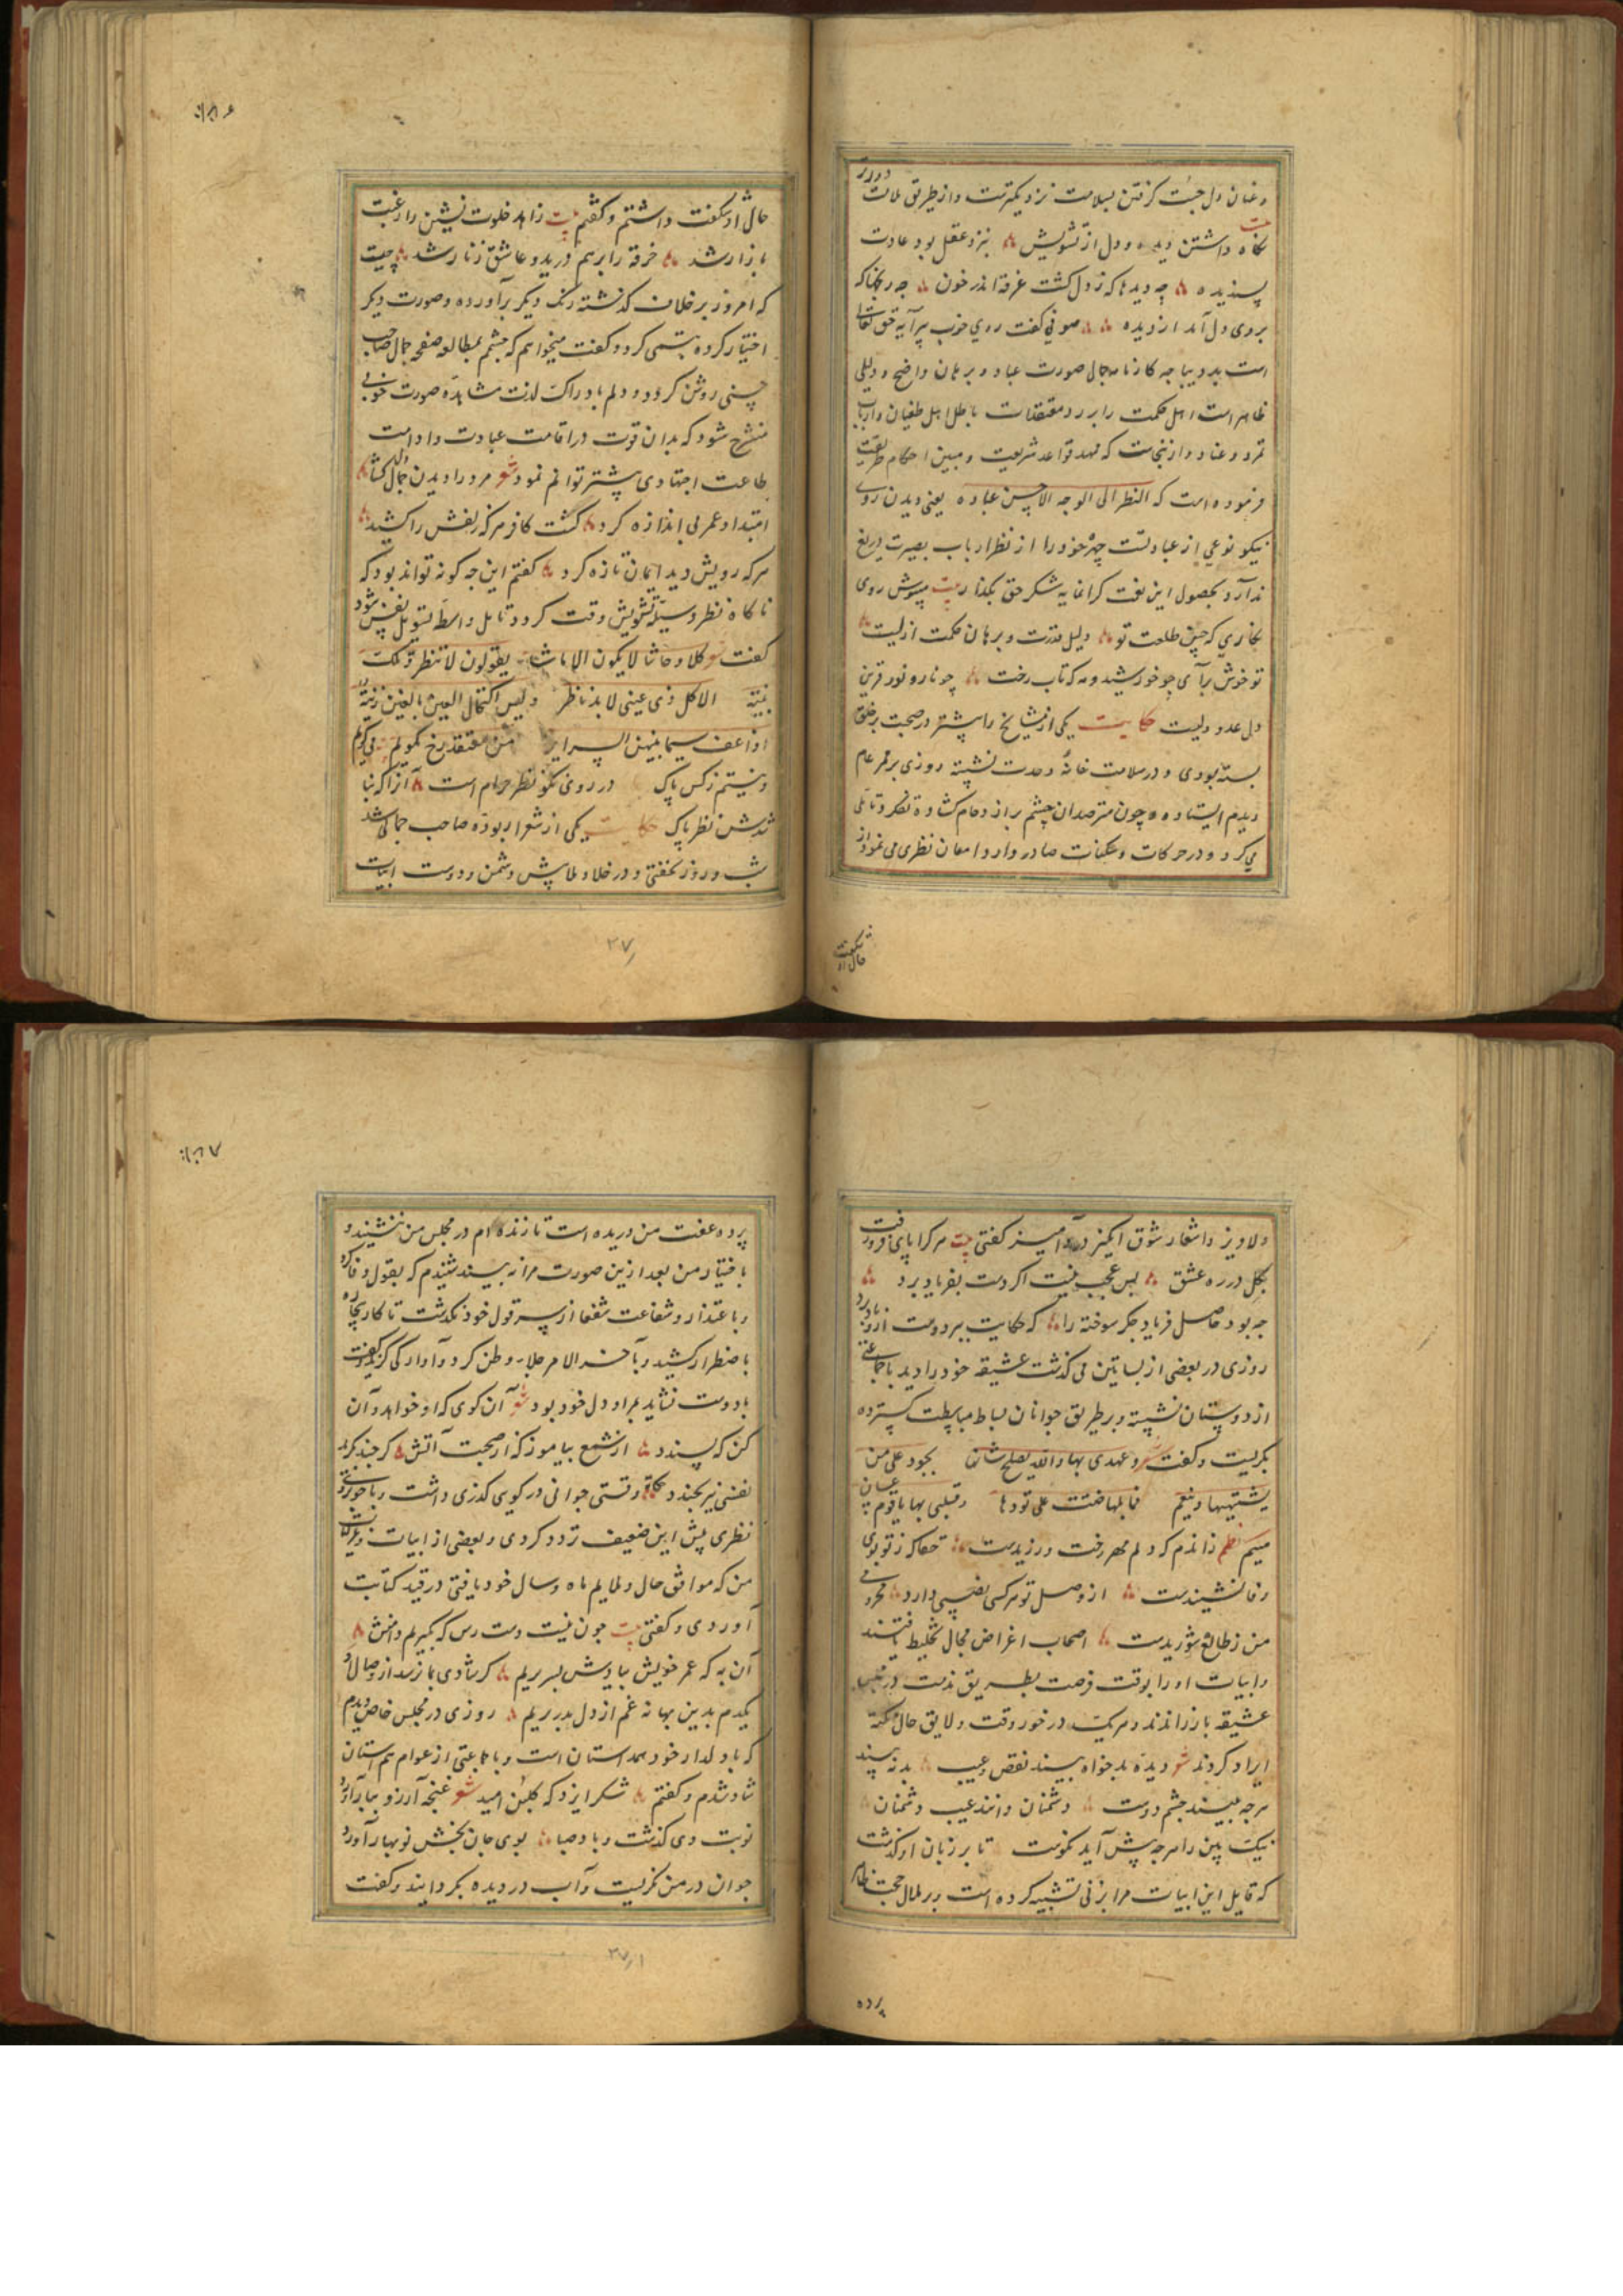 وعنان دل بجست گرفتن بسلامت نزدیکترست و از طریق ملامت دورتر
بیت
نگاه داشتن دیده و دل از تشویش بنزد عقل بود عادت
پسندیده چه دیدها که ز دل گشت غرقه اندر خون چه رنجها که
بروی دل آمد از دیده صوفی گفت روی خوب پیرایه حق تعالی
است بدیباجه کارنامه جمال صورت عباد و برهان واضح و دلیلی
ظاهر است اهل حکمت را بر رد معتقدات باطل اهل طغیان و ارباب
تمرد و عناد و ازینجاست که ممهد قواعد شریعت و مبین احکام طریقت
فرموده است که النظر الی الوجه الحسن عبادة یعنی دیدن روی
نیکو نوعی از عبادتست چهره خود را از نظر ارباب بصیرت دریغ
ندارد بحصول این نعت گرانمایه شکر حق بگذار بیت مپوش روی
نگاری که چنین طلعت تو دلیل قدرت و برهان حکمت ازلیست
تو خوش برآی چو خورشید و مه که تاب رخت چو نار و نور قرین
دل عدو و ولیست حکایت یکی از مشایخ را پیشتر در صحبت بر خلق
بسته بودی و در سلامت خانه وحدت نشسته روزی بر ممر عام
دیدم ایستاده و چون مترصدان چشم بر ازدحام گشاده تفکر و تأملی
می کرد و در حرکات و سکنات صادر و وارد امعان نظری می نمود از
حال او شگفت
حال او شگفت داشتم و گفتم بیت زاهد خلوت نشین را رغبت
بازار شد خرقه را برهم درید و عاشق زنار شد چیست
که امروز بر خلاف گذشته رنگ دیگر برآورده و صورت دیگر
اختیار کرده تبسمی کرد و گفت میخواهم که چشم بمطالعه صفحه جمال صاحب
حسنی روشن گردد و دلم بادراک لذت مشاهده صورت خوبی
منشرح شود که بدان قوت در اقامت عبادت و ادامت
طاعت اجتهادی بیشتر توانم نمود شعر مرد را دیدن جمال دلگشا
امتداد عمر بی اندازه کرد گشت کافر هر که زلفش را کشید
هر که رویش دید ایمان تازه کرد گفتم این چه گونه تواند بود که
ناگاه نظر وسیله تشویش وقت گردد و تأمل واسطه تسویل نفس شود
گفت شعر کلا و حاشا لا یکون الا ما شاء یقولون لا تنظر و تلک
بلیة الا کل ذی عینی لا بد ناظر و لیس اکتحال العین بالعین ریبة
اذا عف سیما بینهن السرایر من معتقد رخ نکویم می گویم
و نیستم ز کس باک در روی نکو نظر حرام است آنرا که نبا
شدش نظر پاک حکایت یکی از شعرا ربوده صاحب جمالی شد
شب و روز نخفتی و در خلا و ملا پیش دشمن و دوست ابیات
۲۷
دلاویز و اشعار شوق انگیز درد آمیز گفتی بیت هر کرا پای فرو رفت
بگل در ره عشق بس عجب نیست اگر دست بفریاد برد
چه بود حاصل فریاد جگر سوخته را که حکایت ببر دوست ازو باد برد
روزی در بعضی از بساتین می گذشت عشیقه خود را دید با جماعتی
از دوستان نشسته و بر طریق جوانان بساط مباسطت گسترده
بگریست و گفت شعر و عهدی بها والله یصلح شانها بجود علی من
یشتهیها و ینعم فما بالها ضنت علی تودها و قلبی بها یا قوم
میم نظم زاندم که دلم مهر رخت ورزیدست حقا که ز تو بوی
وفا نشنیدست از وصل تو هر کسی نصیبی دارد محرومی
من ز طالع شوریدست اصحاب اغراض مجال تخلیط یافتند
و ابیات او را بوقت فرصت بطریق مذمت در مجلس
عشیقه باز راندند و هر یک در خور وقت و لایق حال نکته
ایراد کردند شعر دیده بدخواه بیند نقص و عیب بد نه بیند
هر چه بیند چشم دوست دشمنان دانند عیب دشمنان
نیک بین را هر چه پیش آید نکوست تا بر زبان او گذشت
که قایل این ابیات مرا بزنی تشبیه کرده است و بر لمال حجت ظاهر
پرده
پرده عفت من دریده است تا زنده ام در مجلس من ننشیند و
باختیار من بعد ازین صورت مرا نه بیند شنیدم که بقول وفا کرد
و باعتذار و شفاعت شفعا از سر قول خود نگذشت تا کار بیچاره
باضطرار کشید و بآخر الامر جلاء وطن کرد و آوارگی گزید و گفت
با دوست نشاید بمراد دل خود بود شعر آن گوی که او خواهد و آن
کن که پسندد از شمع بیاموز که از صحبت آتش گر چند بگرید
نفسی نیز بخندد حکایت وقتی جوانی در کوی گذری داشت و با خوبروئی
نظری پیش این ضعیف تردد کردی و بعضی از ابیات و غزلیات
من که موافق حال و ملایم ماه و سال خود یافتی در قید کتابت
آوردی و گفتی بیت چون نیست دست رس که بگیریم دامنش
آن به که عمر خویش بیادش بسر بریم گر شادی بما نرسد از وصال او
یکدم بدین بهانه غم از دل بدر بریم روزی در مجلس خاص دیدم
که با دلدار خود همداستان است و با جماعتی از عوام هم استان
شاد شدم و گفتم شکر ایزد که گلبن امید شعر غنچه آرزو ببار آورد
نوبت دی گذشت و باد صبا بوی جان بخش نوبهار آورد
جوان در من نگریست و آب در دیده بگردانید و گفت
۲۷/۱